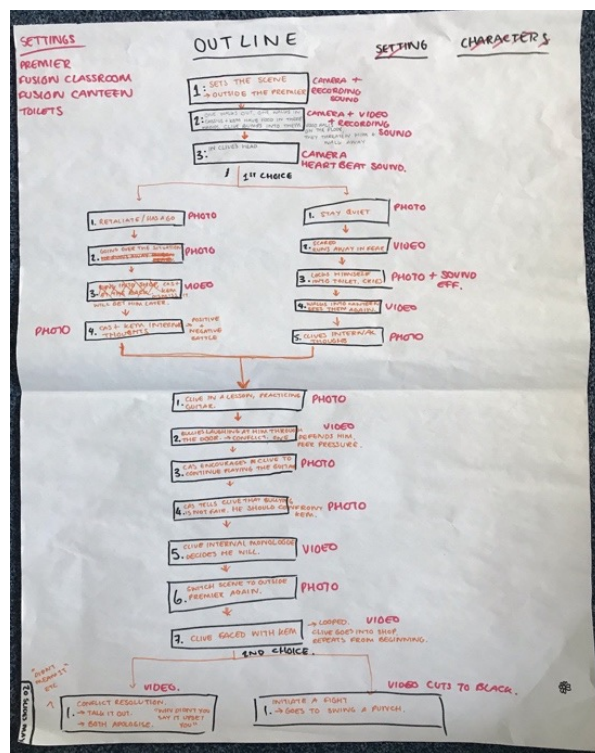 SETTINGS
PREMIER
FUSION CLASSROOM
FUSION CANTEEN
TOILETS
OUTLINE
SETTING
CHARACTERS
1: SETS THE SCENE
→ OUTSIDE THE PREMIER
CAMERA +
RECORDING
SOUND
2:
CLIVE BUMPS INTO THEM
ON THE FLOOR
CAMERA + VIDEO
+ RECORDING
SOUND
3: IN CLIVES HEAD
CAMERA
HEARTBEAT SOUND.
1ST CHOICE
1. RETALIATE / HAS A GO
PHOTO
2. GOING OVER THE SITUATION
PHOTO
3.
VIDEO
WILL GET HIM LATER.
PHOTO
4. CAS + KEM INTERNAL
THOUGHTS
→ POSITIVE
→ NEGATIVE
BATTLE
1. STAY QUIET
PHOTO
2. SCARED
RUNS AWAY IN FEAR
VIDEO
3. LOCKS HIMSELF
INTO TOILET, CRIES
PHOTO + SOUND
EFF.
4. WALKS INTO
SEES THEM AGAIN.
VIDEO
5. CLIVES INTERNAL
THOUGHT
PHOTO
1. CLIVE IN A LESSON, PRACTICING
GUITAR.
PHOTO
2. BULLIES LAUGHING AT HIM THROUGH
THE DOOR. → CONFLICT: ONE DEFENDS HIM.
PEER PRESSURE.
VIDEO
3. CAS ENCOURAGES CLIVE TO
CONTINUE PLAYING THE GUITAR
PHOTO
4. CAS TELLS CLIVE THAT BULLYING
IS NOT FAIR. HE SHOULD CONFRONT
KEM.
PHOTO
5. CLIVE INTERNAL MONOLOGUE
DECIDES HE WILL.
VIDEO
6. SWITCH SCENE TO OUTSIDE
PREMIER AGAIN.
PHOTO
7. CLIVE FACED WITH KEM
→ LOOPED. VIDEO
CLIVE GOES INTO SHOP
REPEATS FROM BEGINNING.
2ND CHOICE.
"DIDN'T
MEAN IT"
ETC
20 SLIDES MAX
VIDEO.
CONFLICT RESOLUTION.
1. → TALK IT OUT.
→ BOTH APOLOGISE.
"WHY DIDN'T YOU
SAY IT UPSET
YOU"
VIDEO CUTS TO BLACK.
INITIATE A FIGHT
1. → GOES TO SWING A PUNCH.